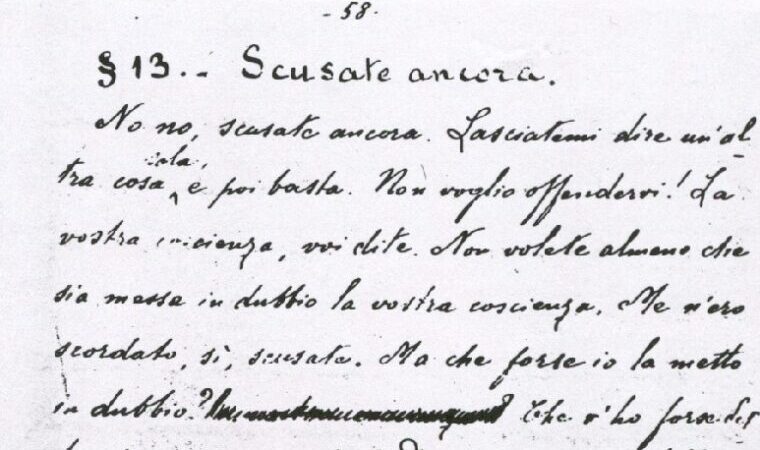 - 58 -
§ 13. - Scusate ancora.
No no, scusate ancora. Lasciatemi dire un'al
tra cosa sola, e poi basta. Non voglio offendervi! La
vostra coscienza, voi dite. Non volete almeno che
sia messa in dubbio la vostra coscienza. Me n'ero
scordato, sì, scusate. Ma che forse io la metto
in dubbio? Che v'ho forse